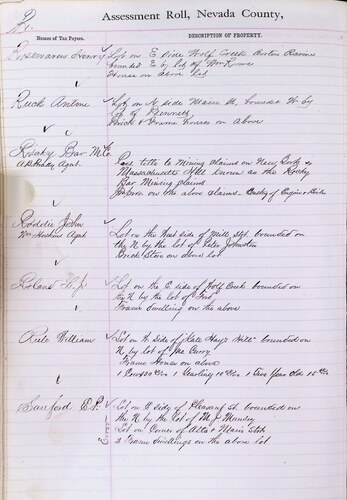 R
Assessment Roll, Nevada County,
Names of Tax Payers.
DESCRIPTION OF PROPERTY.
Henry
Lot on E side Wolf Creek Boston Ravine
bounded E by lot of Wm Rowe
House on above lot
Lot on N side Main St. bounded W by
lot of Bennett
Brick & Frame houses on above
Bar M Co.
Agent.
Poss title to mining claims on New York &
Massachusetts Hill known as the
Bar Mining claims
on the above claims
Roddie John
Wm Agent
Lot on the West side of Mill Str. bounded on
the N by the lot of John Johnston
Brick Store on above lot
Lot on the E. side of Wolf Creek bounded on
the N by the lot of
Frame dwelling on the above
Rule William
Lot on side of Kate Hays Hill bounded on
N by lot of Jas Curry
Frame House on above
1 Yearling 1 Two Year Old
Sanford E. P.
Lot on side of Pleasant St. bounded on
the N by the lot of M. J. Munday
Lot on Corner of Alta & Main Sts
2 Frame Dwellings on the above lot